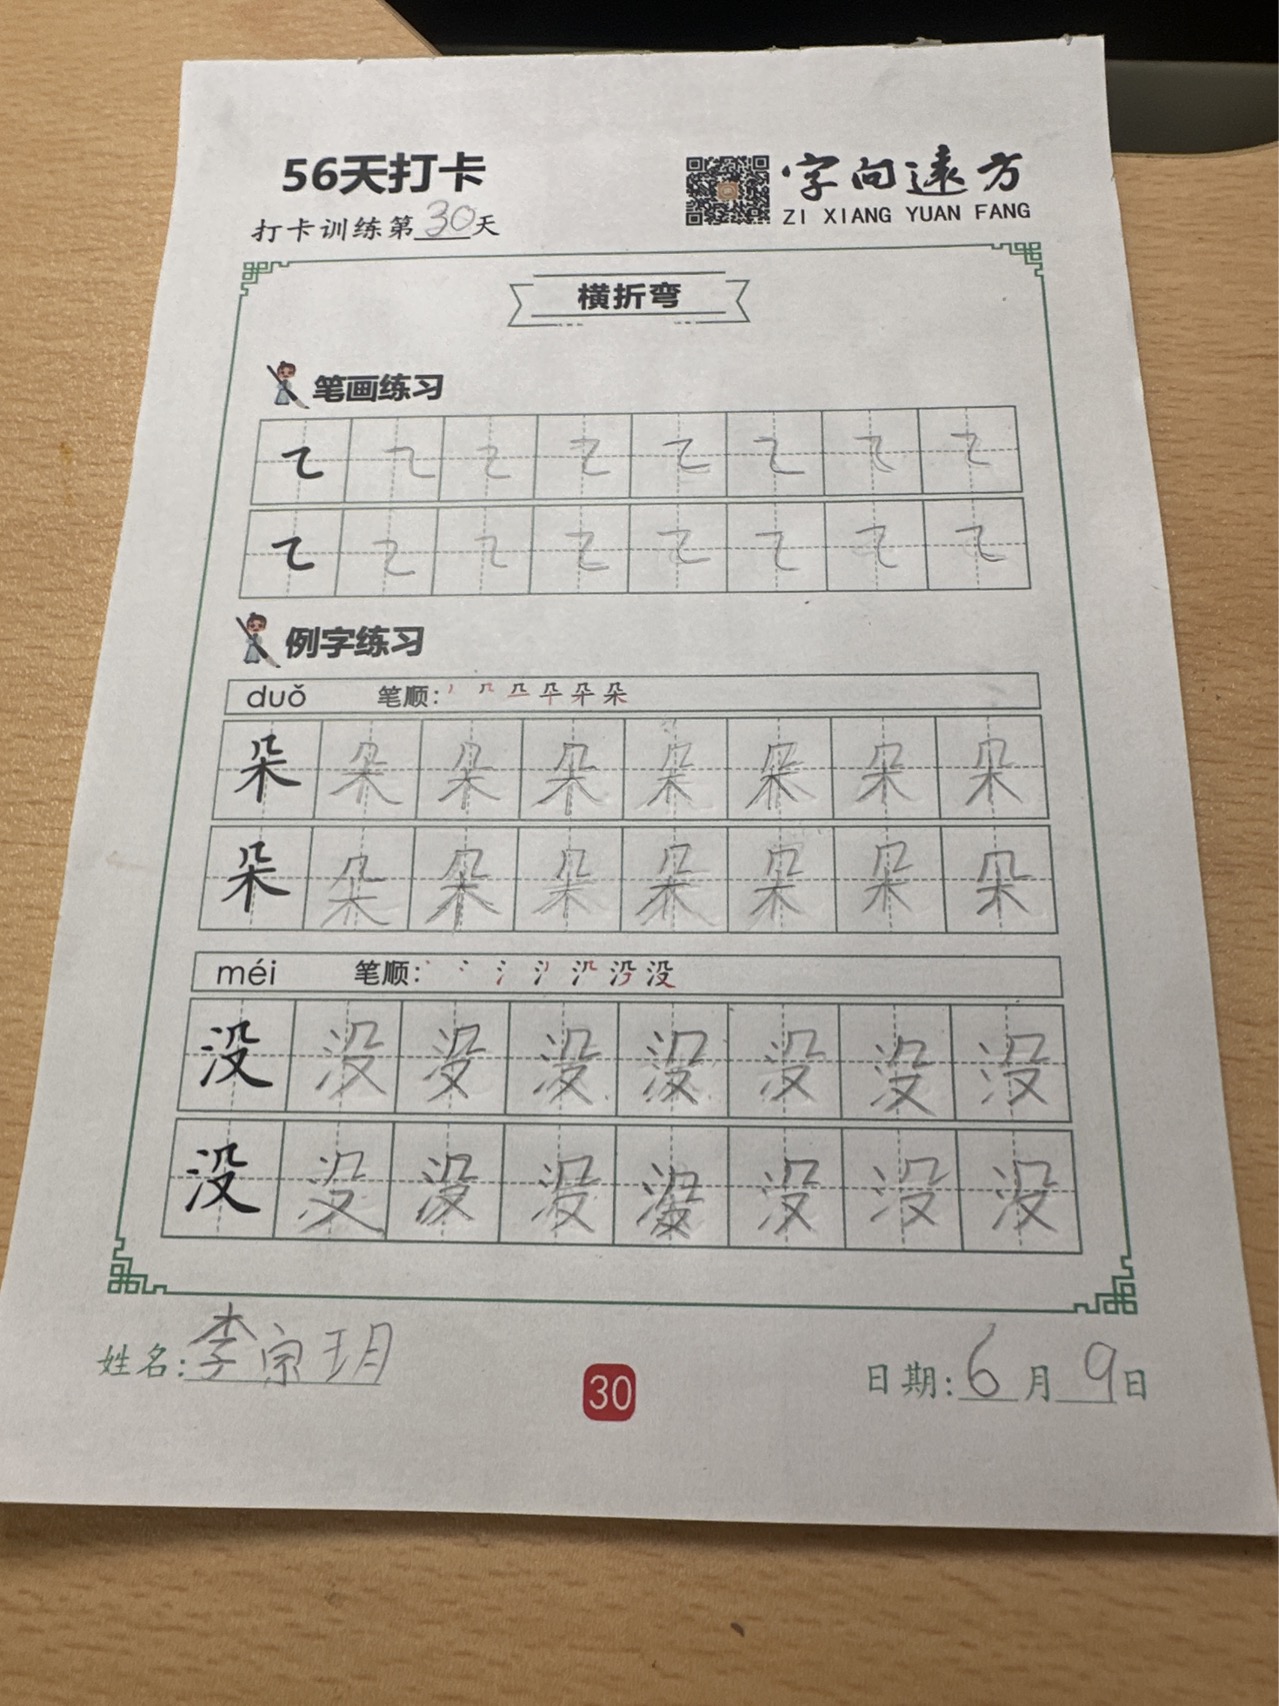 56天打卡
字向遠方
打卡训练第30天
ZI XIANG YUAN FANG
横折弯
笔画练习
㇍ ㇍ ㇍ ㇍ ㇍ ㇍ ㇍ ㇍
㇍ ㇍ ㇍ ㇍ ㇍ ㇍ ㇍ ㇍
例字练习
duǒ 笔顺: 朵
朵 朵 朵 朵 朵 朵 朵 朵
朵 朵 朵 朵 朵 朵 朵 朵
méi 笔顺: 没
没 没 没 没 没 没 没 没
没 没 没 没 没 没 没 没
姓名:李宗玥
30
日期:6月9日